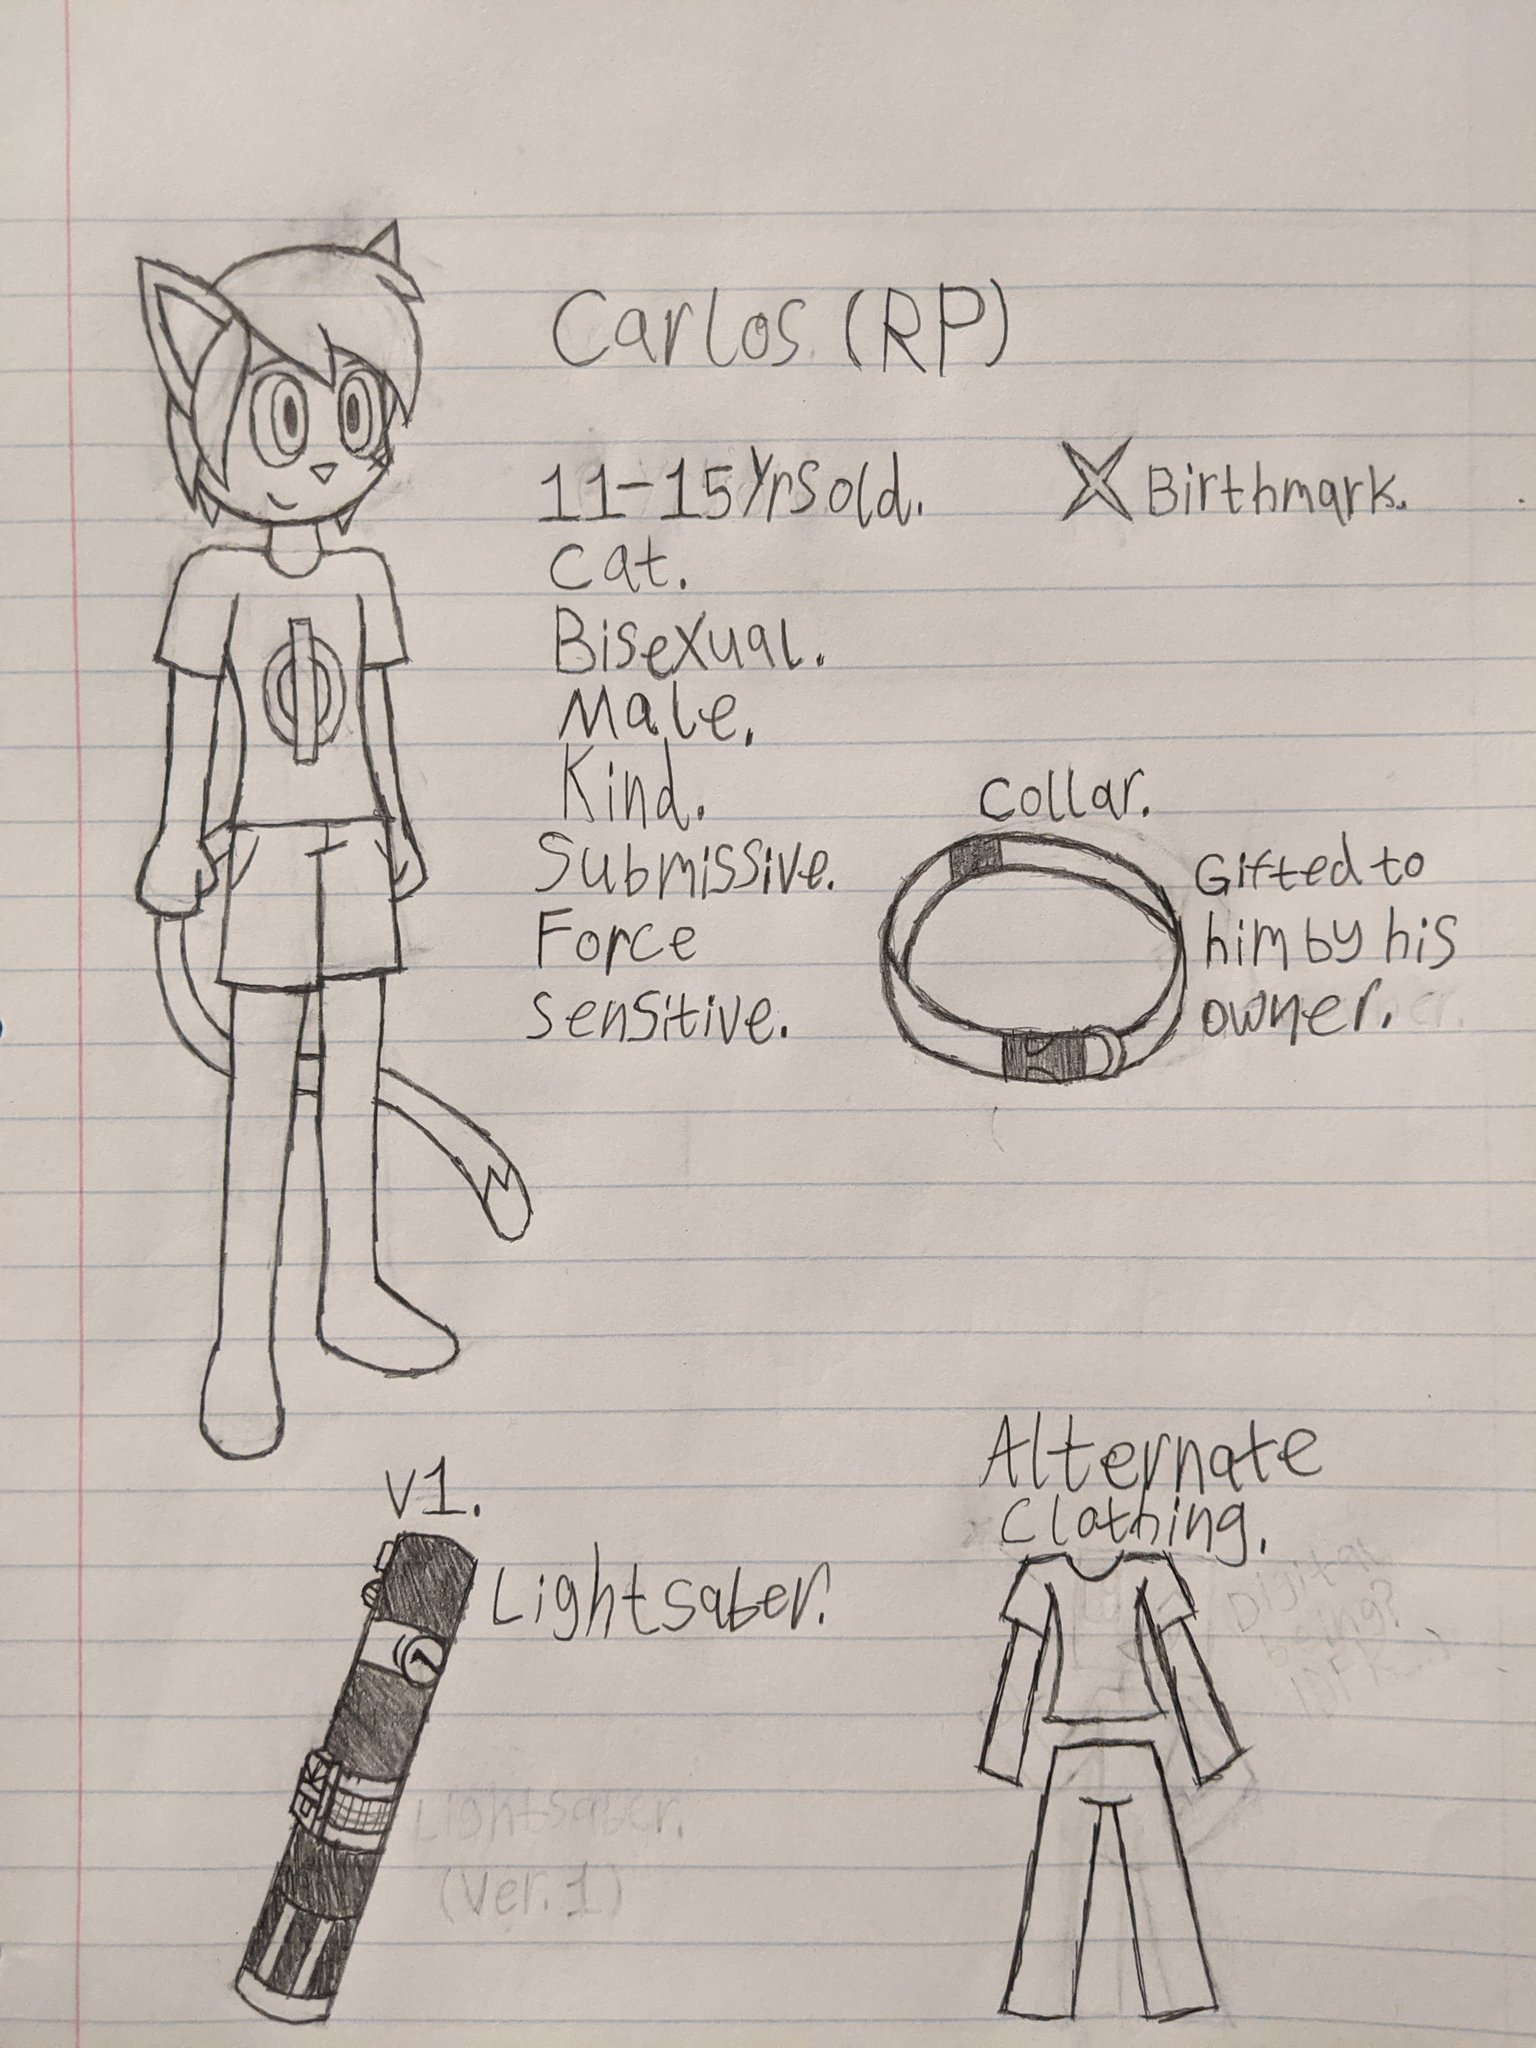 Carlos (RP)
11-15 yrs old.
Birthmark.
Cat.
Bisexual.
Male.
Kind.
Submissive.
Force
sensitive.
Collar.
Gifted to
him by his
owner.
V1.
Lightsaber.
1
Lightsaber.
(Ver. 1)
Alternate
Clothing.
Digital
being?